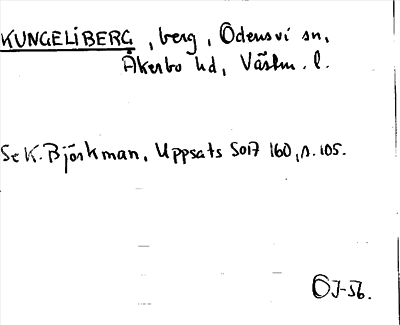 KUNGELIBERG, berg, Odensvi sn,
Åkerbo hd, Västm. l.
Se K. Björkman, Uppsats SOIF 160, s. 105.
ÖJ-56.